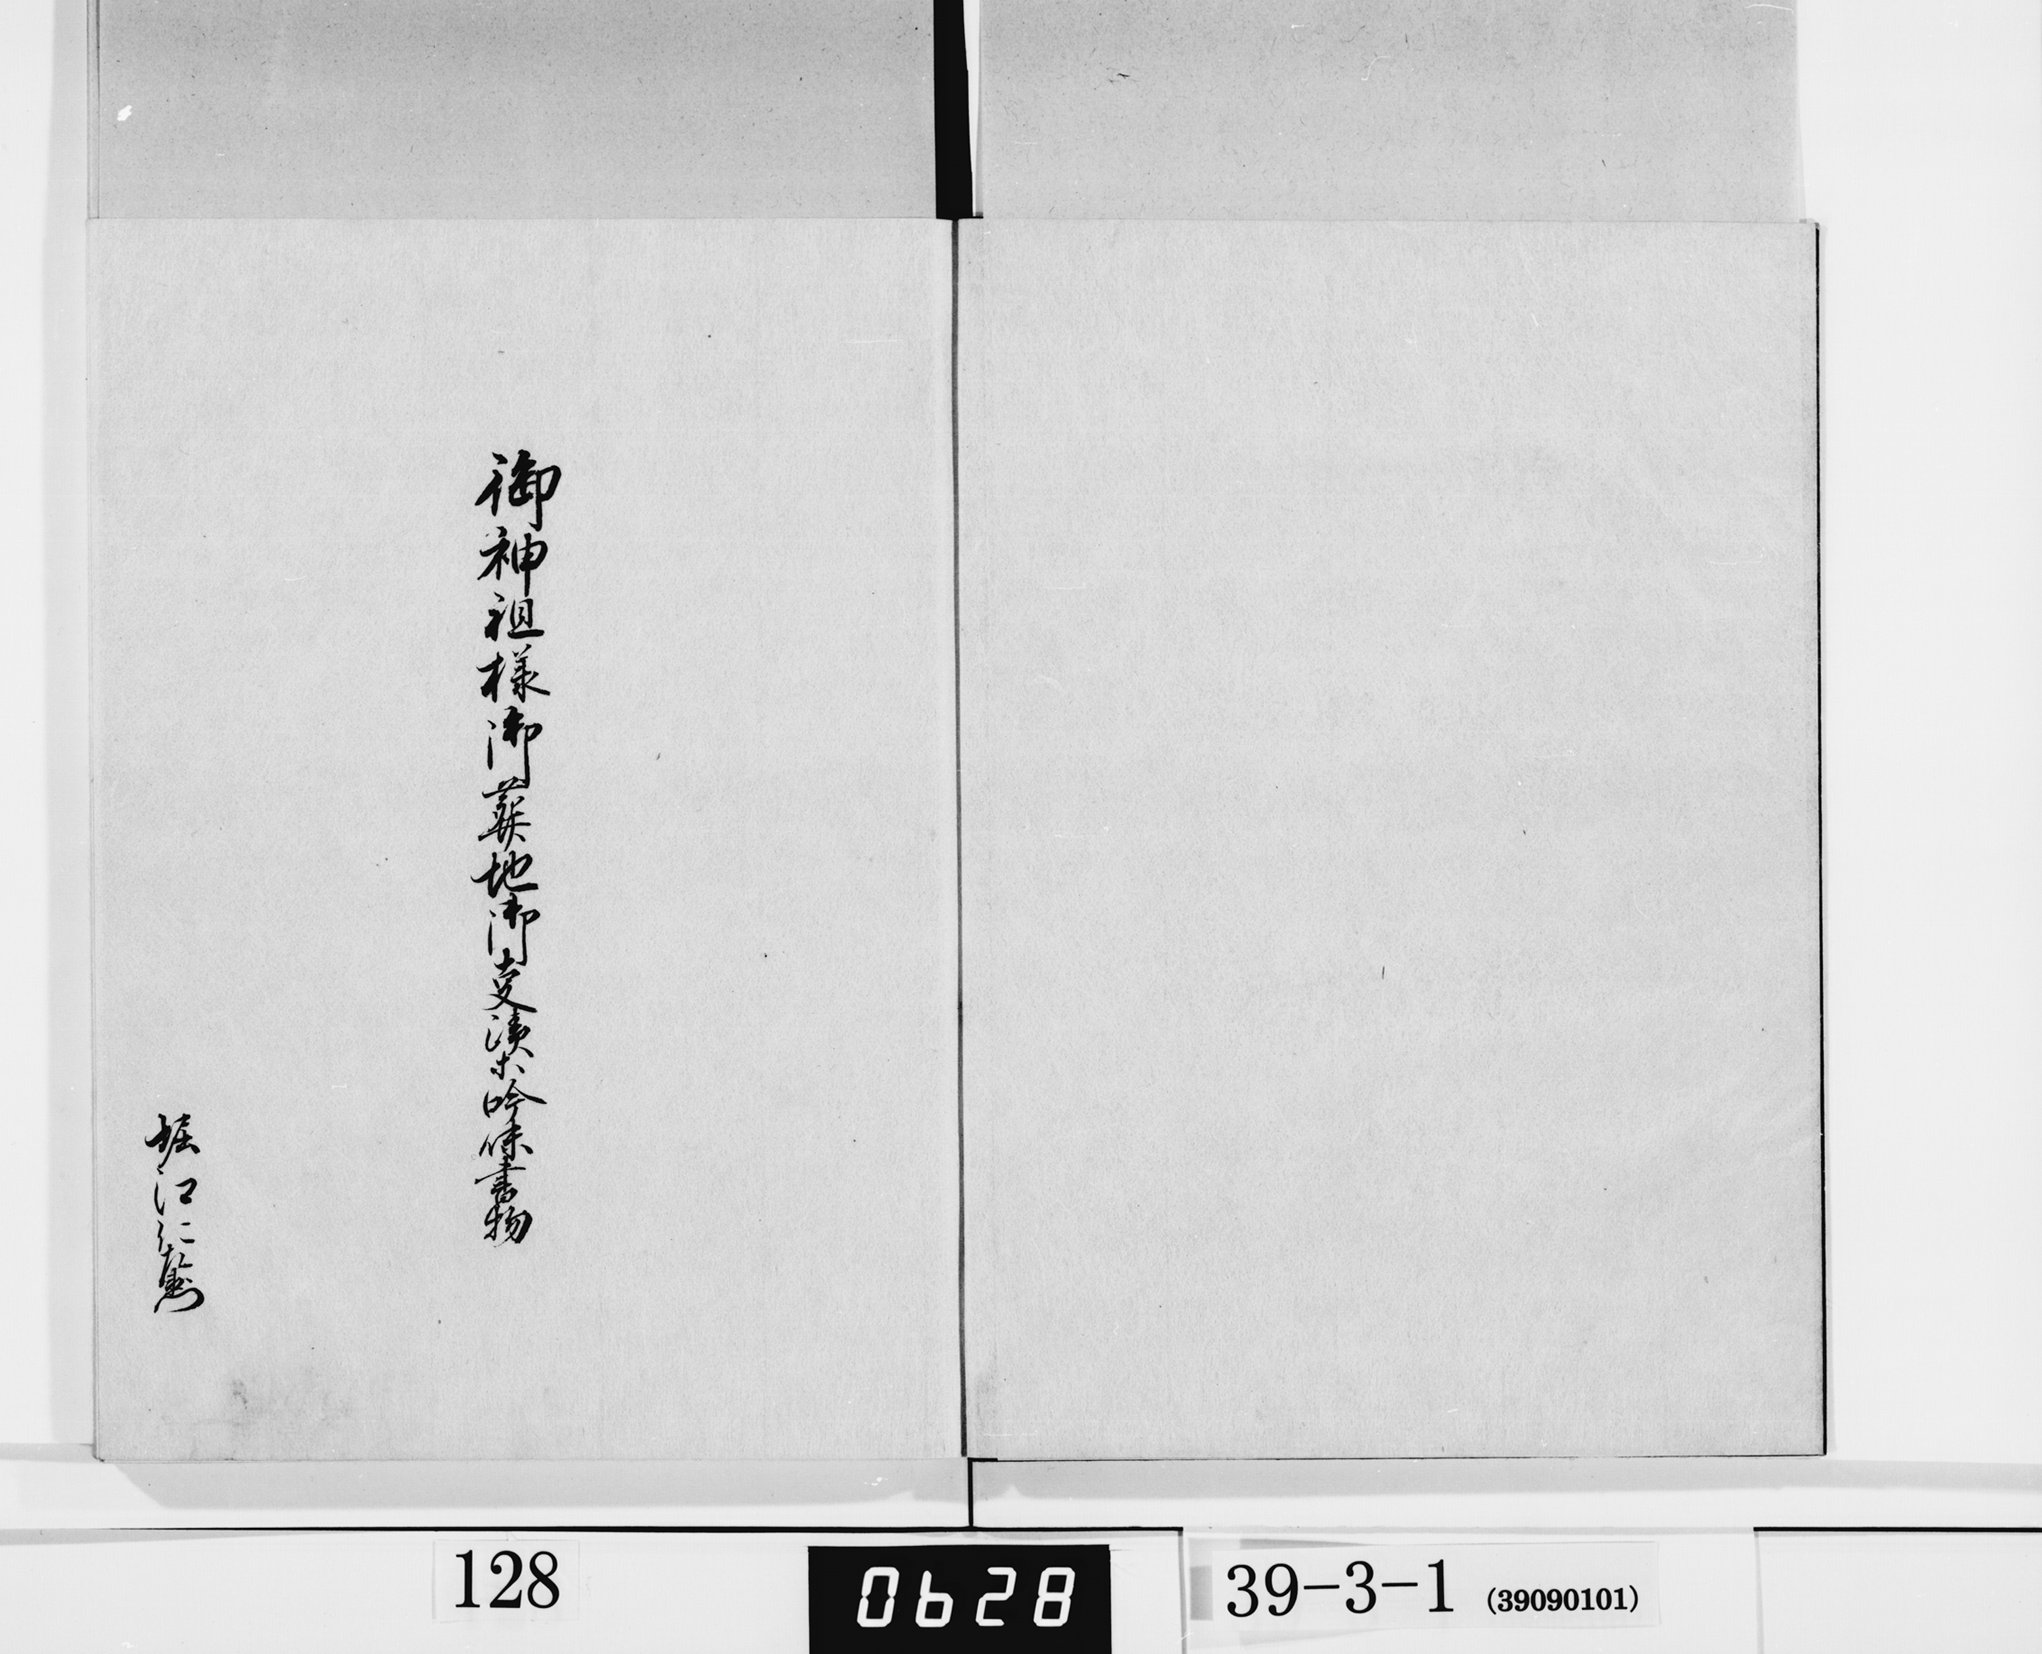 御神祖様御葬地御事漬等吟味書物
堀江仁
128
0628
39-3-1 (39090101)